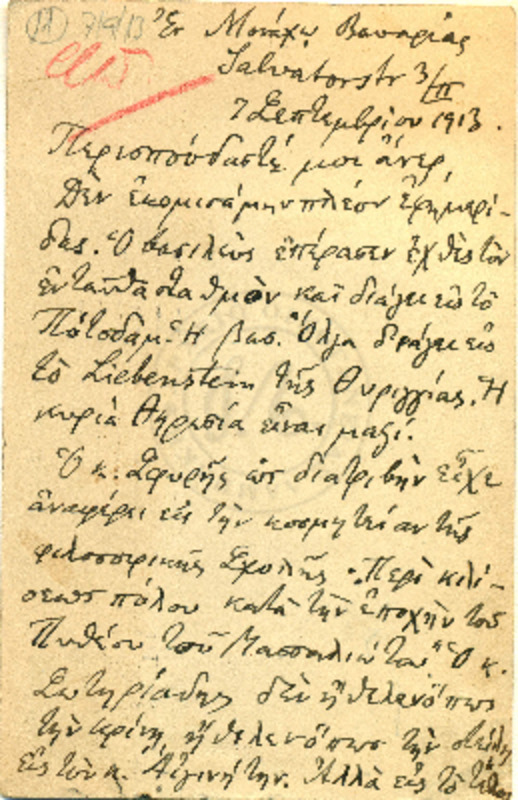 (11) 7/9/13
Ἐν Μονάχῳ Βαυαρίας
Salvatorstr 3/II
7 Σεπτεμβρίου 1913.
Περισπούδαστέ μοι ἄνερ,
Δὲν ἐκομισάμην πλέον ἐφημερί-
δας. Ὁ βασιλεὺς ἐπέρασεν ἐχθὲς τὸν
ἐνταῦθα σταθμὸν καὶ διάγει εἰς τὸ
Πότσδαμ. Ἡ βασ. Ὄλγα διάγει εἰς
τὸ Liebenstein τῆς Θυριγγίας. Ἡ
κυρία Θηρεσία εἶναι μαζί.
Ὁ κ. Σφυρῆς ὡς διατριβὴν εἶχε
ἀναφέρει εἰς τὴν κοσμητείαν τῆς
φιλοσοφικῆς Σχολῆς "Περὶ κλί-
σεως πόλου κατὰ τὴν ἐποχὴν τοῦ
Πυθέου τοῦ Μασσαλιώτου" Ὁ κ.
Σωτηριάδης δὲν ἤθελεν ὅπως
τὴν κρίνῃ ἤθελεν ὅπως τὴν στείλῃ
εἰς τὸν κ. Αἰγινήτην. Ἀλλὰ εἰς τὸ τέλος